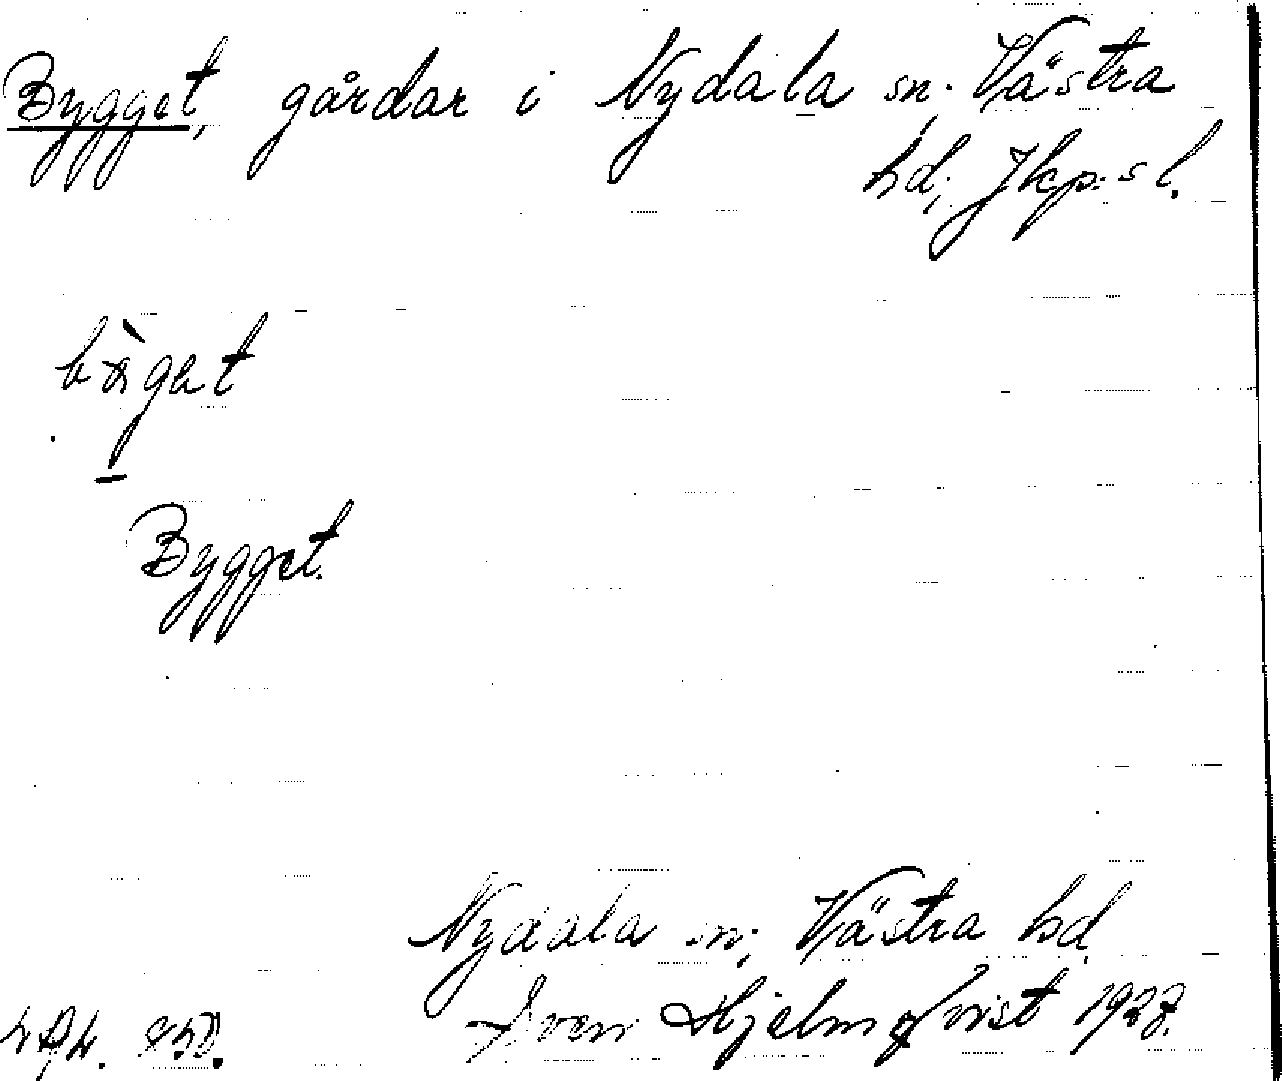 Bygget, gårdar i Nydala sn; Västra
hd; Jkp:s l.
Bygget.
Nydala sn; Västra hd.
Sven Hjelmqvist 1928.